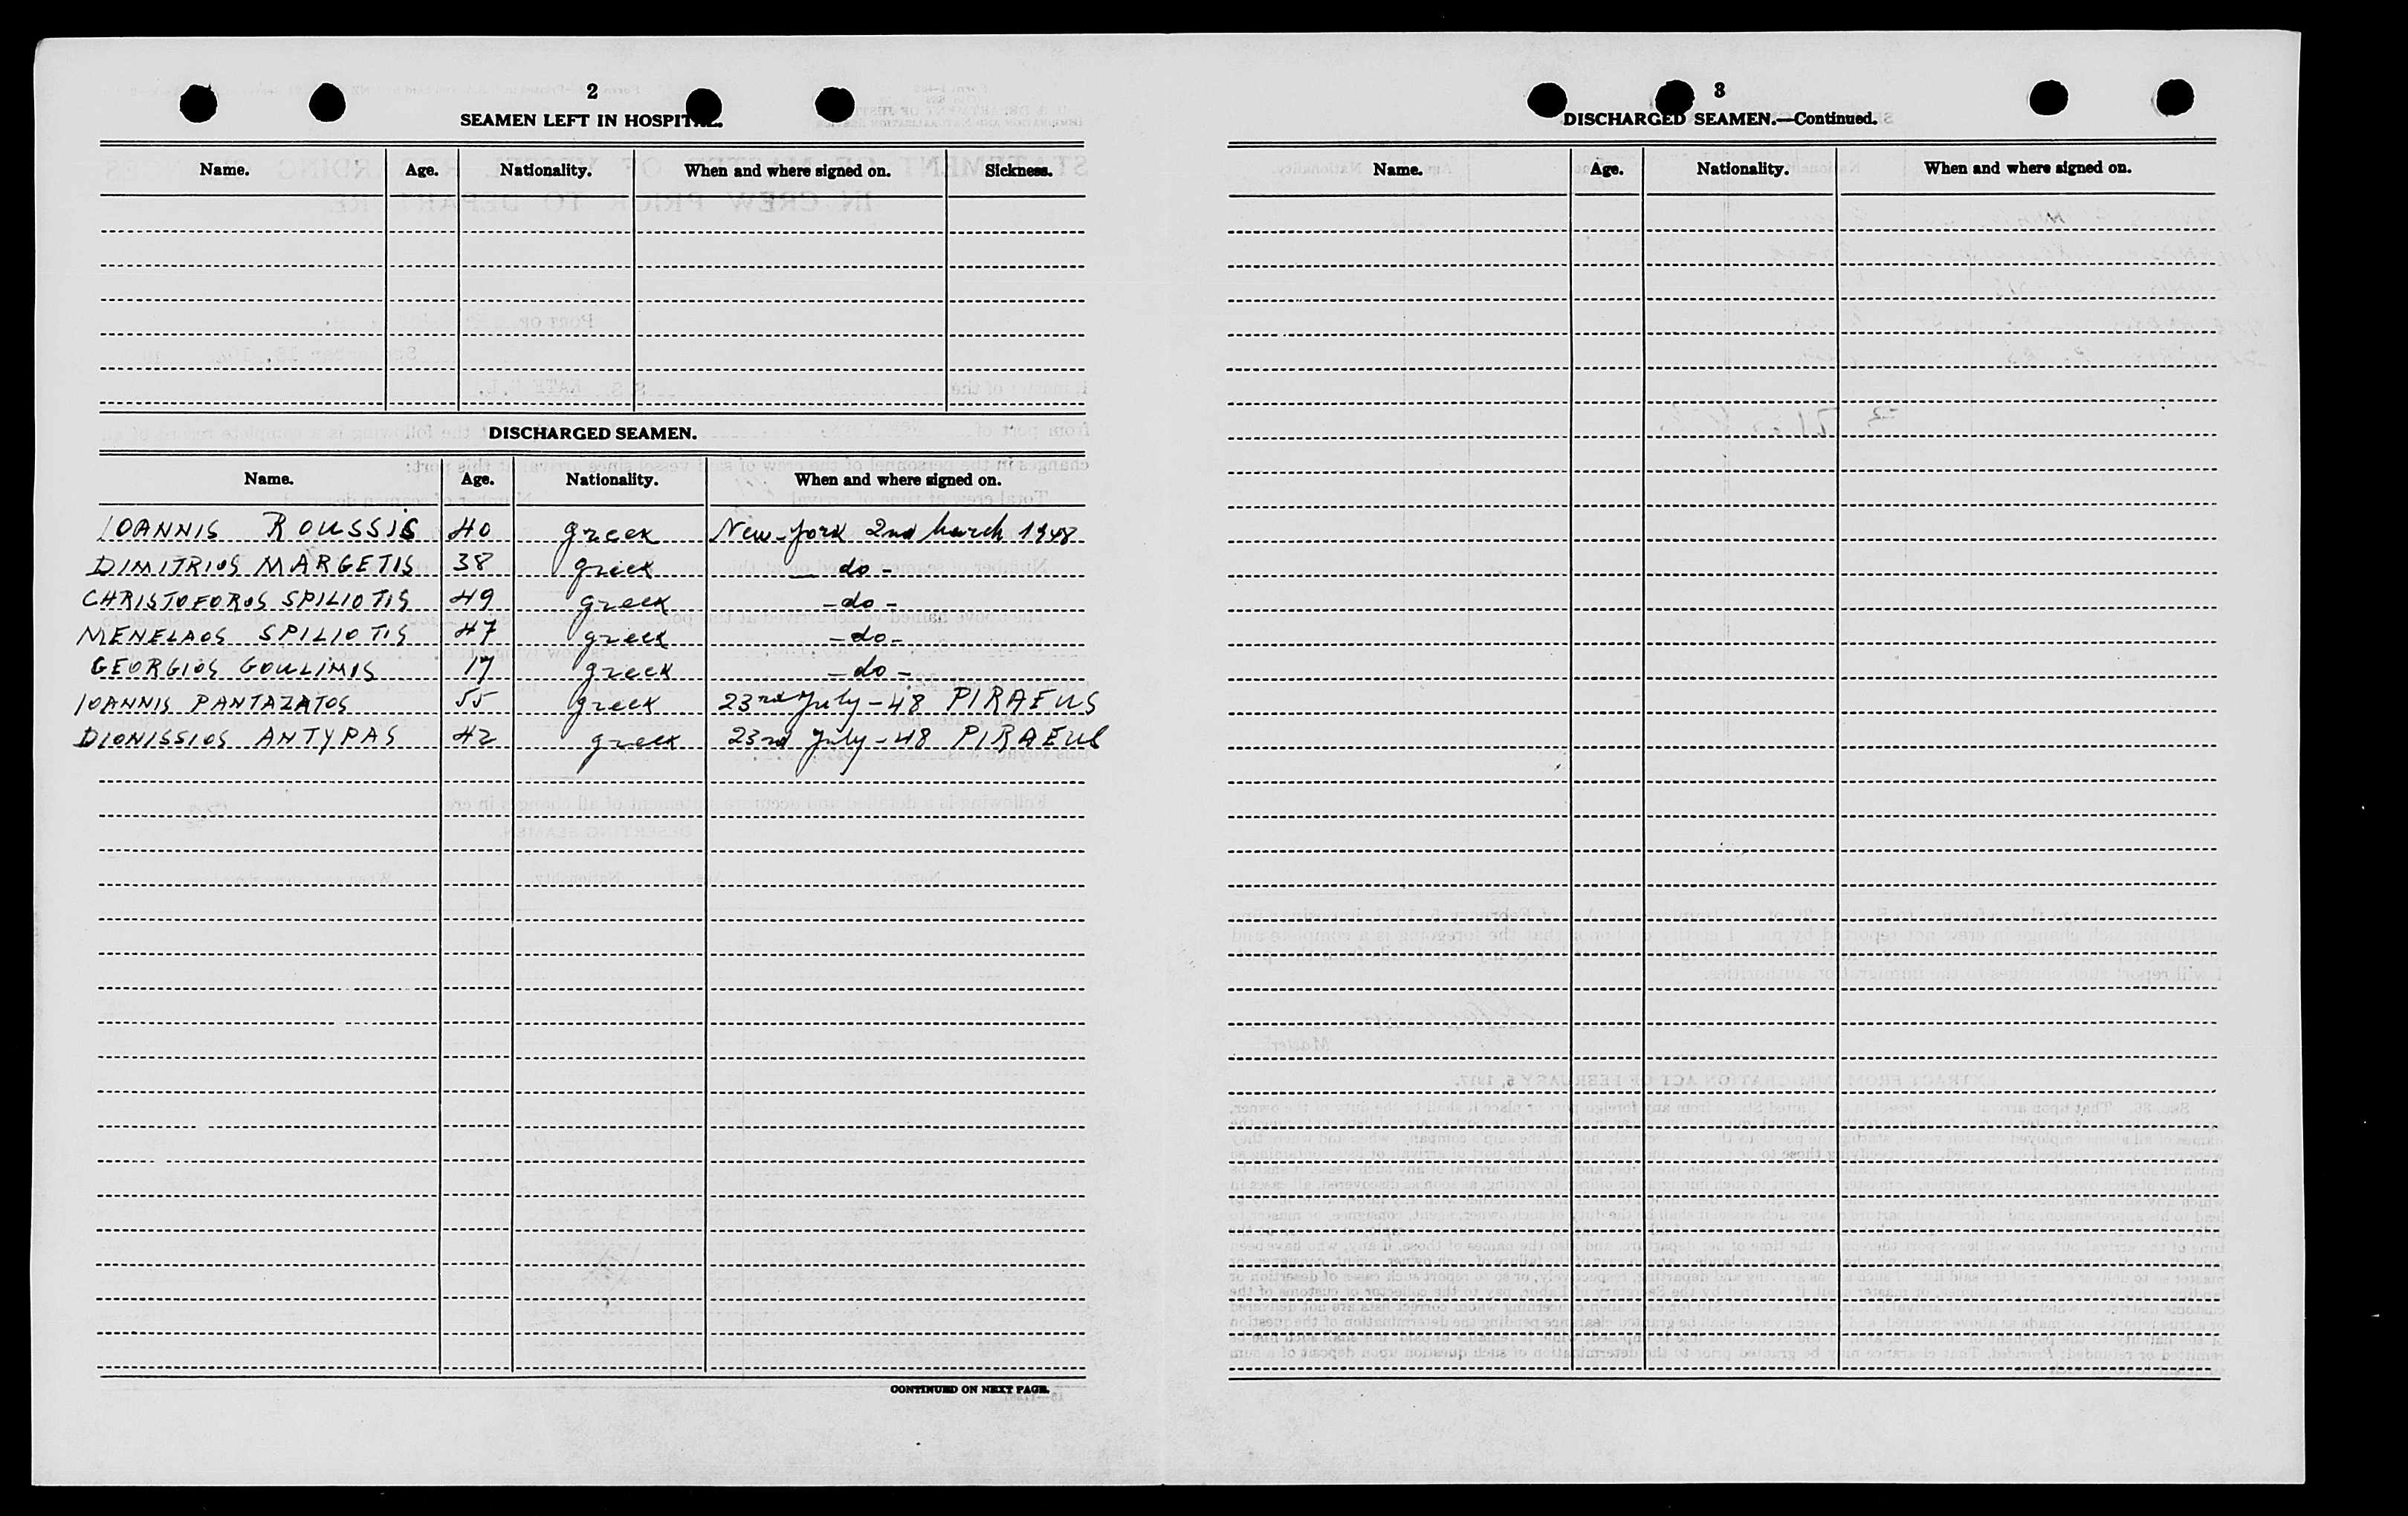 2
SEAMEN LEFT IN HOSPITAL.
Name. Age. Nationality. When and where signed on. Sickness.
DISCHARGED SEAMEN.
Name. Age. Nationality. When and where signed on.
IOANNIS ROUSSIS 40 greek New-York 2nd March 1948
DIMITRIOS MARGETIS 38 greek — do -
CHRISTOFOROS SPILIOTIS 49 greek - do -
MENELAOS SPILIOTIS 47 greek - do -
GEORGIOS GOULIMIS 17 greek - do -
IOANNIS PANTAZATOS 55 greek 23rd July - 48 PIRAEUS
DIONISSIOS ANTYPAS 42 greek 23rd July - 48 PIRAEUS
CONTINUED ON NEXT PAGE.
3
DISCHARGED SEAMEN.—Continued.
Name. Age. Nationality. When and where signed on.